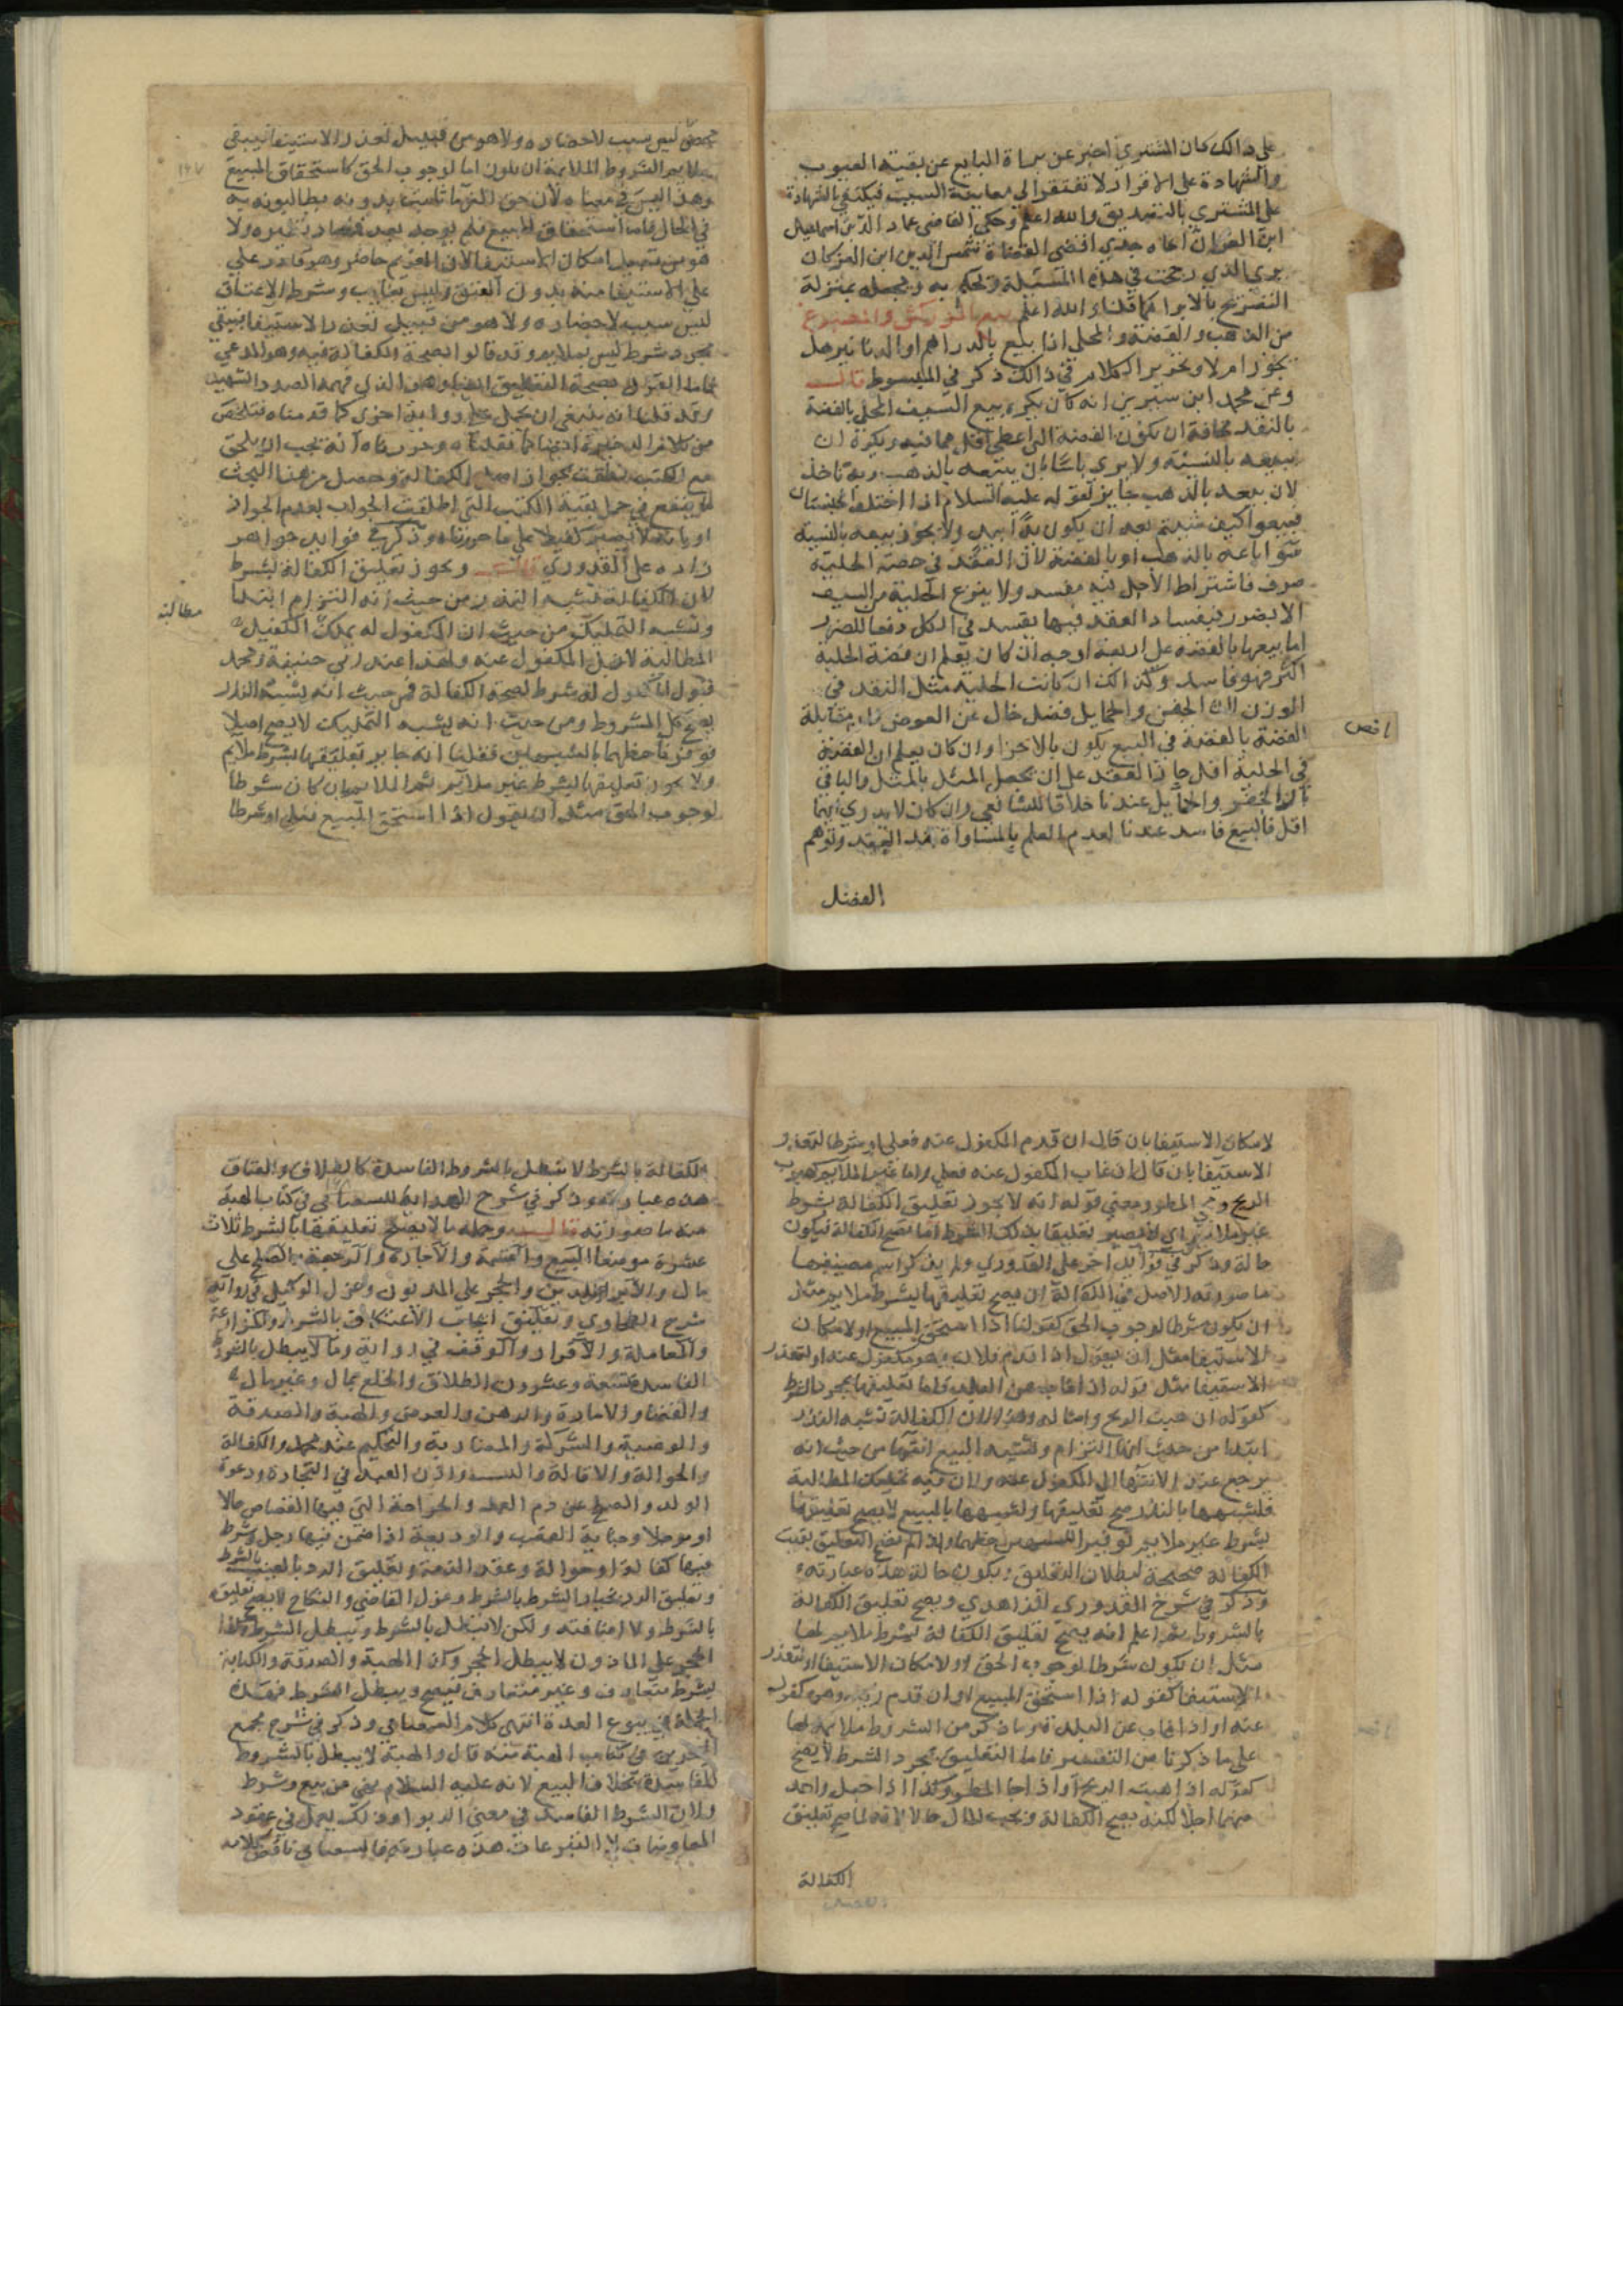 على ذالك كان المشتري اخبر عن براة البايع عن بقية العيوب
والشهادة على الاقرار لا تفتقر الي معاينة السبب فيكتفي بالشهادة
على المشتري بالتصديق والله اعلم وحكي القاضي عماد الدين اسماعيل
ابن العز ان اخاه جدي اقضى القضاة شمس الدين ابن العز كان
يري الذي رجحت في هذه المسئلة ويحكم به ويجعله بمنزلة
التصريح بالابرا كما قلنا والله اعلم بيع المزركش والمصنوع
من الذهب والفضة والمحلى اذا بيع بالدراهم او الدنانير هل
يجوز ام لا وتحرير الكلام في ذالك ذكر في المبسوط قال
وعن محمد ابن سيرين انه كان يكره بيع السيف المحلى بالفضة
بالنقد مخافة ان يكون الفضة التي اعطي اقل مما فيه ويكره ان
يبيعه بالنسيئة ولا يري باسا بان يبتعه بالذهب وبه ناخذ
لان بيعه بالذهب جايز لقوله عليه السلام اذا اختلف الجنسان
فبيعوا كيف شيتم بعد ان يكون يدا بيد ولا يجوز بيعه بالنسية
سوا باعه بالذهب او بالفضة لان العقد في حصة الحلية
صرف فاشتراط الاجل فيه مفسد ولا ينزع الحلية من السيف
الا بضرر فبفساد العقد فيها يفسد في الكل دفعا للضرر
اما بيعها بالفضة على اربعة اوجه ان كان يعلم ان فضة الحلية
اكثر فهو فاسد وكذالك ان كانت الحلية مثل النقد في
الوزن لان الجفن والحمايل فضل خال عن العوض فان مقابلة
الفضة بالفضة في البيع يكون بالاجزا وان كان يعلم ان الفضة
في الحلية اقل جاز العقد على ان يجعل المثل بالمثل والباقي
بازا الجفن والحمايل عندنا خلافا للشافعي وان كان لا يدري ايهما
اقل فالبيع فاسد عندنا لعدم العلم بالمساواة عند العقد وتوهم
الفضل
ناقص
ليس سبب لاحضاره ولا هو من قبيل تعذر الاستيفا فيبقي
ملايم الشروط الملايمة ان يكون اما لوجوب الحق كاستحقاق المبيع
وهذا ليس في معناه لان حق الغرما ثابت بدونه يطالبونه به
في الحال فاما استحقاق المبيع فلم يوجد بعد
هو من قبيل امكان الاستيفا لان الغريم حاضر وهو قادر علي
علي الاستيفا منه بدون العتق وليس بغايب وشرط الاعتاق
ليس سبب لاحضاره ولا هو من قبيل تعذر الاستيفا فيبقي
مجرد شرط ليس بملايم وقد قالوا بصحة الكفالة فيه وهو المدعي
وقد قلنا انه ينبغي ان يحمل على رواية اخرى كما قدمناه فتلخص
لينتفع في حمل بقية الكتب التي اطلقت الجواب بعدم الجواز
او بانه لا يصير كفيلا على ما حررناه وذكر في فوايد خواهر
زاده على القدوري قال ويجوز تعليق الكفالة بشرط
لان الكفالة تشبه النذر من حيث انه التزام ابتدا
وتشبه التمليك من حيث ان المكفول له يملك الكفيل
مطالبة
المطالبة لاجل المكفول عنه ولهذا عند ابي حنيفة ومحمد
قبول المكفول له شرط لصحة الكفالة فمن حيث انه يشبه النذر
يصح كل المشروط ومن حيث انه يشبه التمليك لا يصح اصلا
فوفرنا حظهما بالشبهين فقلنا انه جايز تعليقها بشرط ملايم
ولا يجوز تعليقها بشرط غير ملايم ثم الملايم ان كان شرطا
لوجوب الحق مثل ان يقول اذا استحق المبيع فعلي او شرطا
لامكان الاستيفا بان قال ان قدم المكفول عنه فعلي او شرطا لتعذر
الاستيفا بان قال ان غاب المكفول عنه فعلي واما غير الملايم كهبوب
الريح ومجي المطر ومعني قوله انه لا يجوز تعليق الكفالة بشرط
غير ملايم اي لا يصير تعليقا بذلك الشرط اما تصح الكفالة فيكون
حالة وذكر في فوايد اخر على القدوري ولم يذكر اسم مصنفها
ما صورته الاصل في الكفالة ان يصح تعليقها بشرط ملايم مثل
ان يكون شرطا لوجوب الحق كقولنا اذا استحق المبيع او لامكان
الاستيفا مثل ان يقول اذا قدم فلان وهو مكفول عنه او لتعذر
الاستيفا مثل قوله اذا غاب عن البلد فاما تعليقها بمجرد الشرط
كقوله ان هبت الريح وامثاله وهذا لان الكفالة تشبه النذر
ابتدا من حيث انها التزام وتشبه البيع انتها من حيث انه
يرجع عند الانتها الي المكفول عنه ولان فيه تمليك المطالبة
فلشبهها بالنذر صح تعليقها ولشبهها بالبيع لا يصح تعليقها
بشرط غير ملايم توفيرا للشبهين حظهما واذا لم يصح التعليق بقيت
الكفالة صحيحة لبطلان التعليق ويكون حالة هذه عبارته
وذكر في شرح القدوري للزاهدي ويصح تعليق الكفالة
بالشروط ثم اعلم انه يصح تعليق الكفالة بشرط ملايم لها
مثل ان يكون شرطا لوجوب الحق او لامكان الاستيفا او تعذر
الاستيفا كقوله اذا استحق المبيع او ان قدم زيد وهو مكفول
عنه او اذا غاب عن البلد وما ذكر من الشروط ملايمة لها
على ما ذكرنا من التفسير فاما التعليق بمجرد الشرط لا يصح
كقوله اذا هبت الريح او اذا جا المطر وكذا اذا جعل واحد
منهما اجلا لكنه يصح الكفالة ويجب المال حالا لانه لما صح تعليق
الكفالة
الكفالة بالشرط لا تبطل بالشروط الفاسدة كالطلاق والعتاق
هذه عبارته وذكر في شرح الهداية للسغناقي في كتاب الهبة
منه ما صورته قال وجملة ما لا يصح تعليقها بالشرط ثلاث
عشرة موضعا البيع والقسمة والاجارة والرجعة والصلح على
مال والابرا عن الدين والحجر على المديون وعزل الوكيل في رواية
شرح الطحاوي وتعليق ايجاب الاعتكاف بالشرط والمزارعة
والمعاملة والاقرار والوقف في رواية وما لا يبطل بالشروط
الفاسدة ستة وعشرون الطلاق والخلع بمال وغير مال
والقضا والامارة والرهن والقرض والهبة والصدقة
والوصية والشركة والمضاربة والتحكيم عند محمد والكفالة
والحوالة والاقالة والنسب واذن العبد في التجارة ودعوة
الولد والصلح عن دم العمد والجراحة التي فيها القصاص حالا
او موجلا وجناية الغصب والوديعة اذا ضمن فيها رجل وشرط
فيها كفالة او حوالة وعقد الذمة وتعليق الرد بالعيب بالشرط
وتعليق الرد بخيار الشرط بالشرط وعزل القاضي والنكاح لا يصح تعليقه
بالشرط ولا اضافته ولكن لا يبطل بالشرط ويبطل الشرط وكذا
الحجر على الماذون لا يبطل الحجر وكذا الهبة والصدقة والكتابة
بشرط متعارف وغير متعارف تصح ويبطل الشرط فهذه
الجملة في بيوع العدة انتهى كلام السغناقي وذكر في شرح مجمع
البحرين في كتاب الهبة منه قال والهبة لا يبطل بالشروط
الفاسدة بخلاف البيع لانه عليه السلام نهى عن بيع وشرط
ولان الشرط الفاسد في معنى الربوا وذلك يعمل في عقود
المعاوضات لا التبرعات هذه عبارته فالسغناقي ناقض كلامه